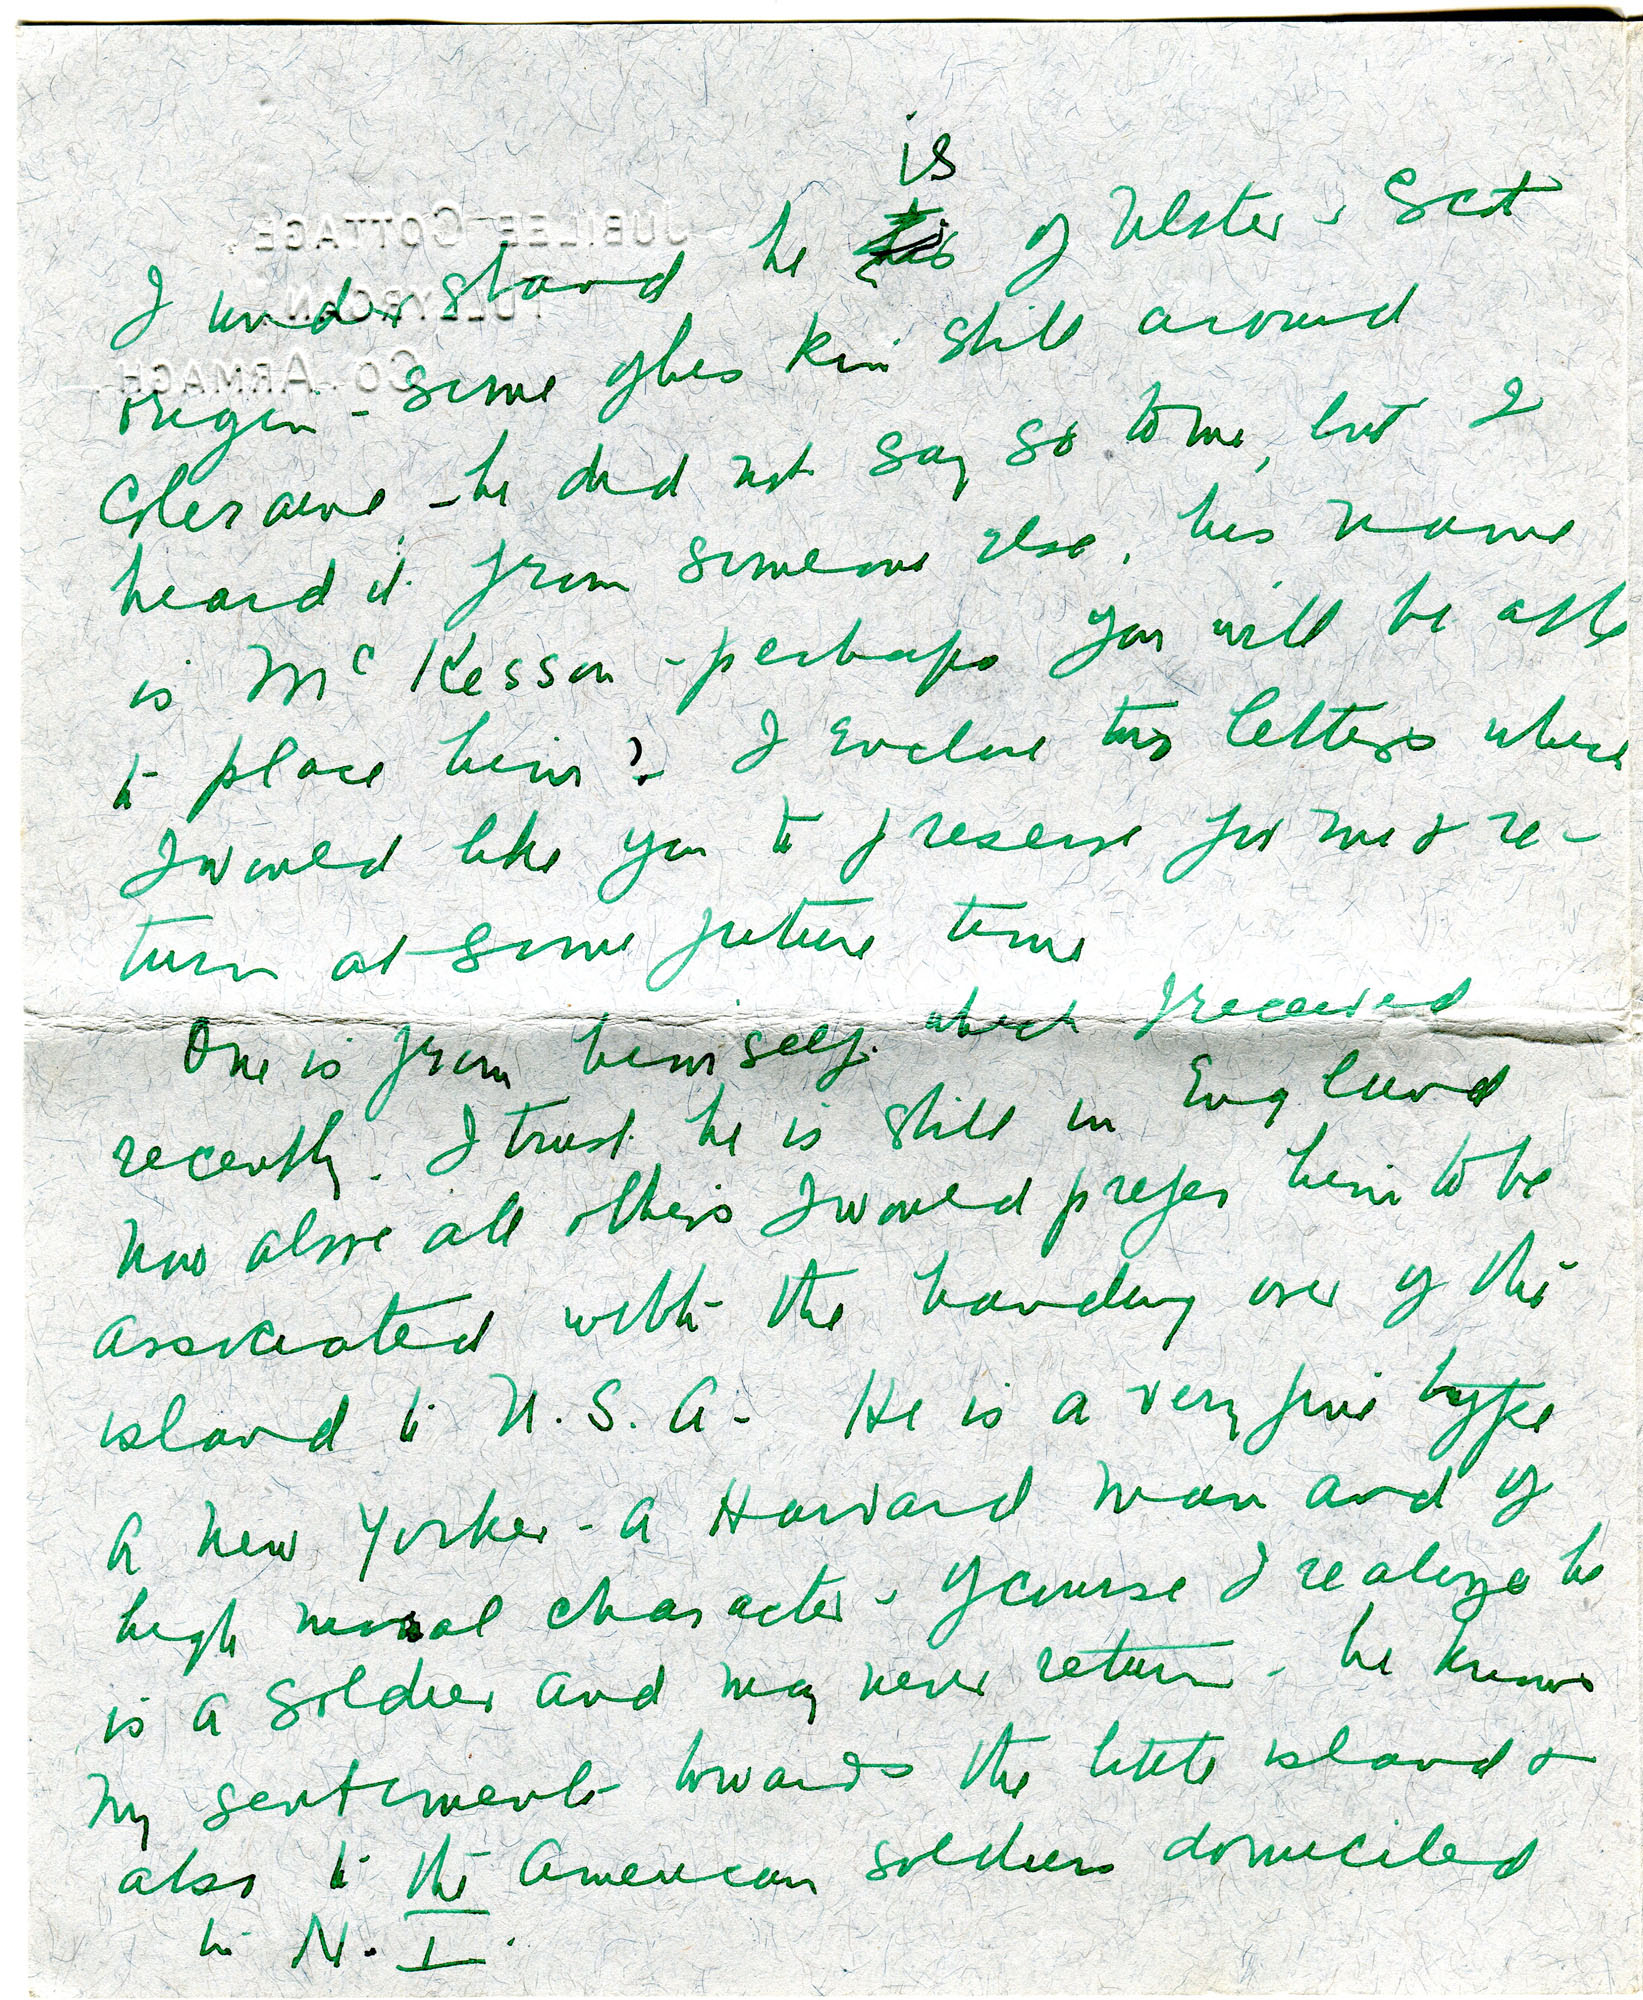 JUBILEE COTTAGE,
TULLYROAN,
CO. ARMAGH.
is
I understand he of Ulster-Scot
origin - some of his kin still around
Coleraine - he did not say so to me, but I
heard it from someone else, his name
is McKesson - perhaps you will be able
to place him? I enclose two letters where
I would like you to preserve for me & re-
turn at some future time
One is from himself which I received
recently. I trust he is still in England
Now above all others I would prefer him to be
associated with the handing over of the
island to U.S.A. He is a very fine type
A New Yorker - a Harvard man and of
high moral character. Of course I realize he
is a soldier and may never return - he knows
my sentiments towards the little island &
also to the American soldiers domiciled
in N.I.